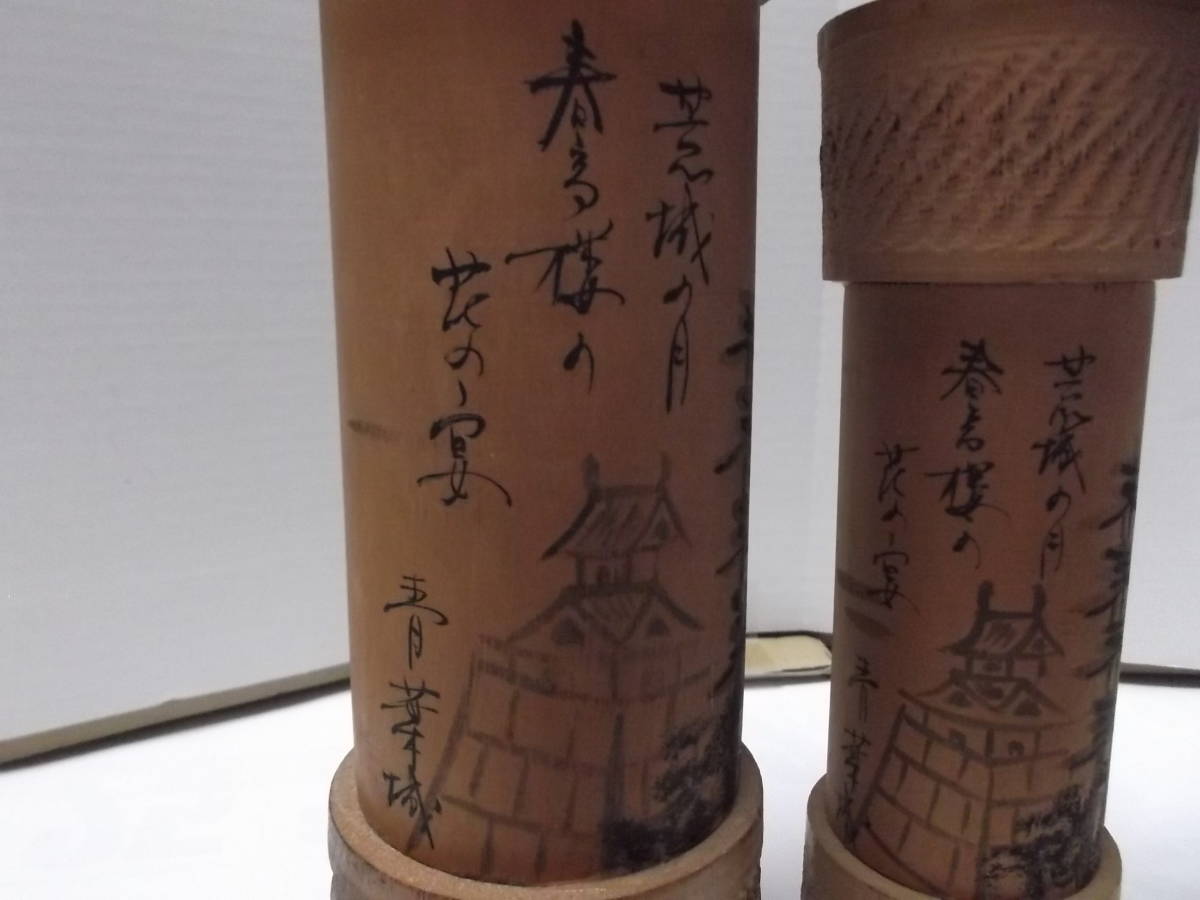 荒城の月
春高楼の
花の宴
青葉城
荒城の月
春高楼の
花の宴
青葉城